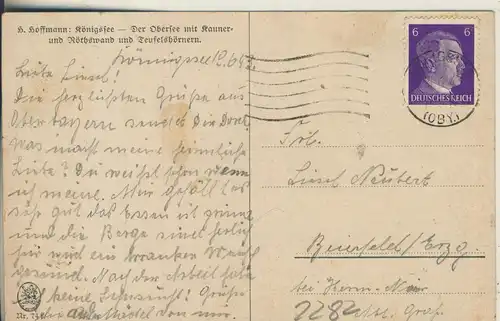 H. Hoffmann: Königssee — Der Obersee mit Kauner-
und Röthswand und Teufelshörnern.
Königssee 12.6.
Liebe Liesel!
Die herzlichsten Grüße aus
Oberbayern sendet Dir Dorle
Was macht meine heimliche
Liebe? Du weißt schon wenn
ich meine. Mir gefällt es
sehr gut das Essen ist prima
und die Berge sind herrlich
hier wird ein kranker Mensch
gesund. Nach der Arbeit habe
ich keine Sehnsucht! Grüße
von mir.
Nr. 73
6 6
DEUTSCHES REICH
(OBY.)
Frl.
Liesel Neubert
Beierfeld/Erzg.
bei Herrn
2282